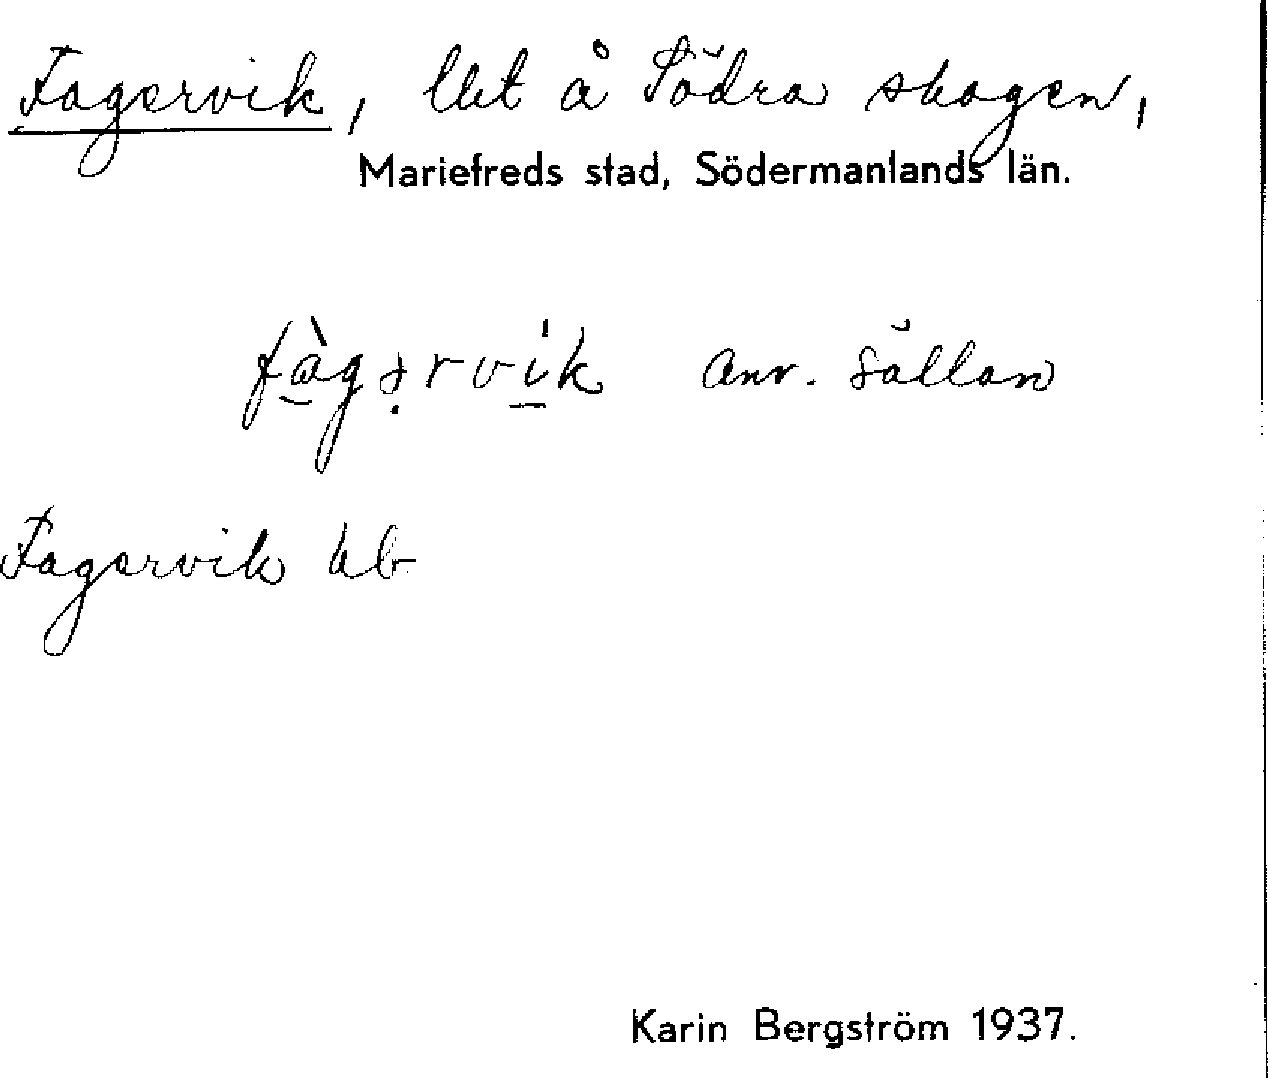 Fagervik, lht å Södra skogen,
Mariefreds stad, Södermanlands län.
fàgərvik anv. sällan
Fagervik
Karin Bergström 1937.